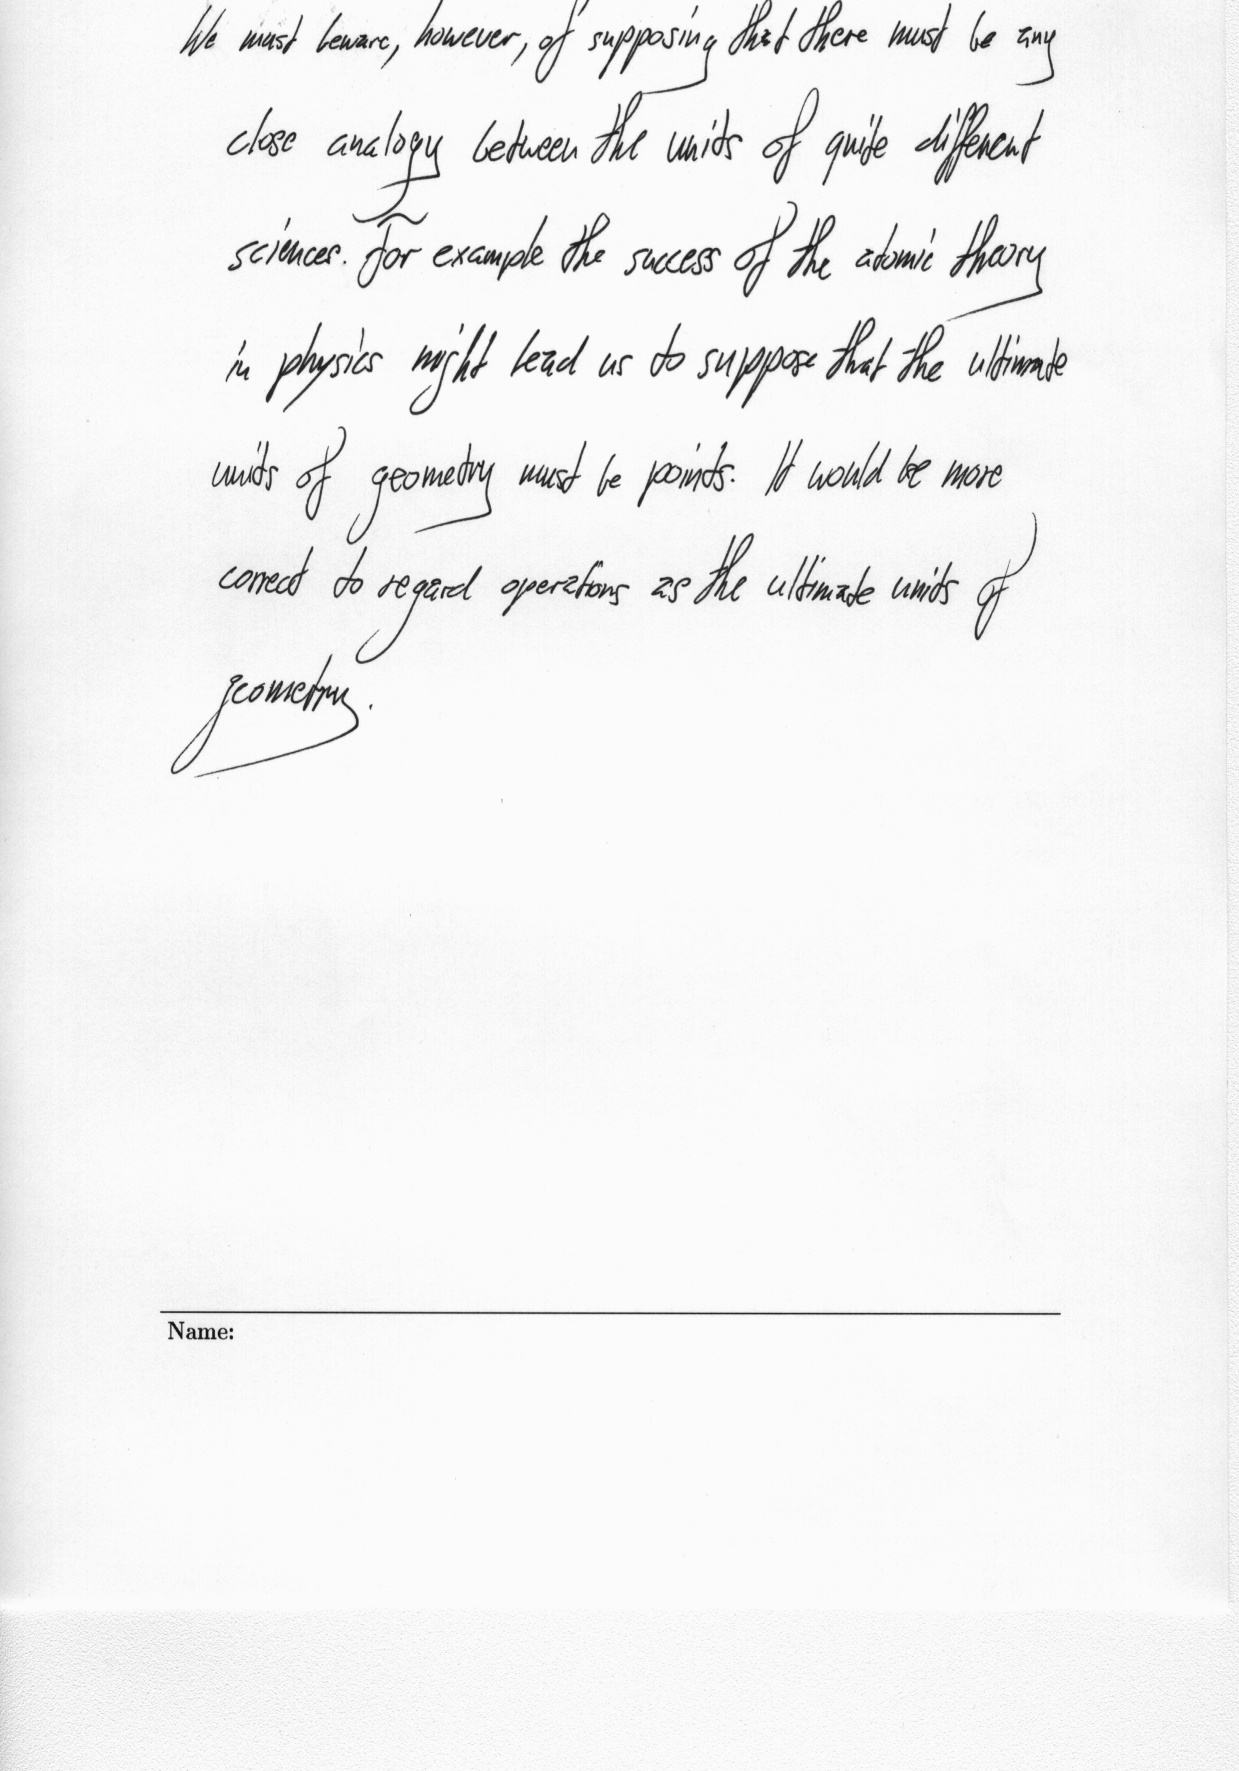 We must beware, however, of supposing that there must be any
close analogy between the units of quite different
sciences. For example the success of the atomic theory
in physics might lead us to suppose that the ultimate
units of geometry must be points. It would be more
correct to regard operations as the ultimate units of
geometry.
Name: